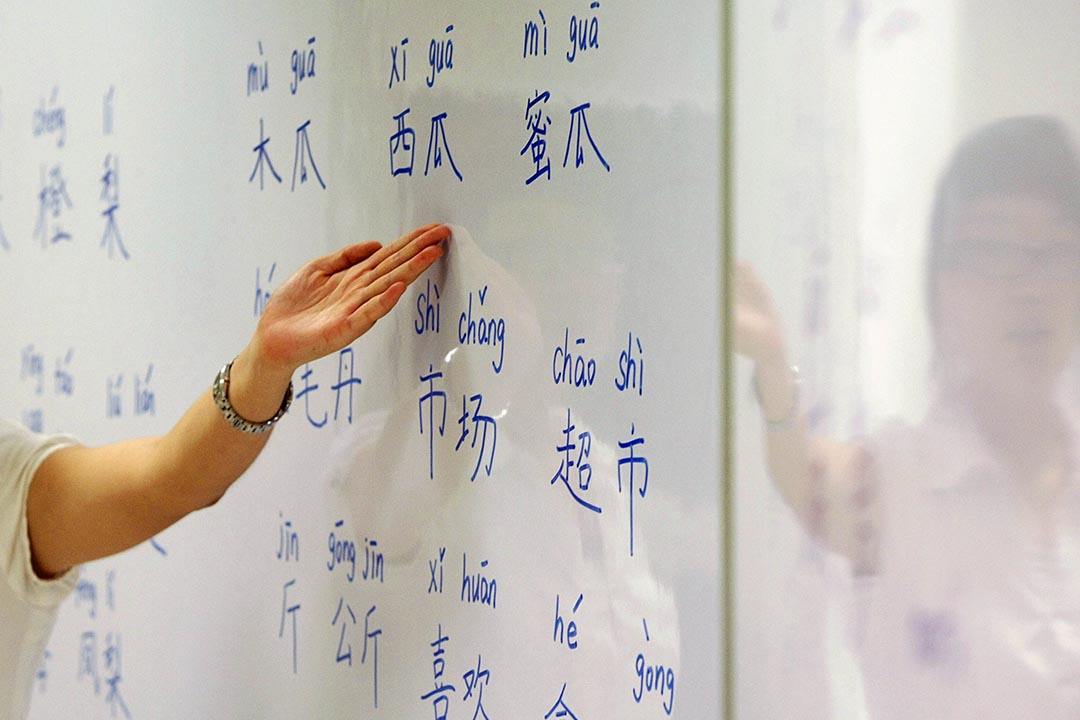 mù guā xī guā mì guā
木瓜 西瓜 蜜瓜
chéng lí
橙 梨
shì chǎng chāo shì
毛丹 市场 超市
liú lián
jīn gōng jīn xǐ huān hé gòng
斤 公斤 喜欢
lí
凤梨